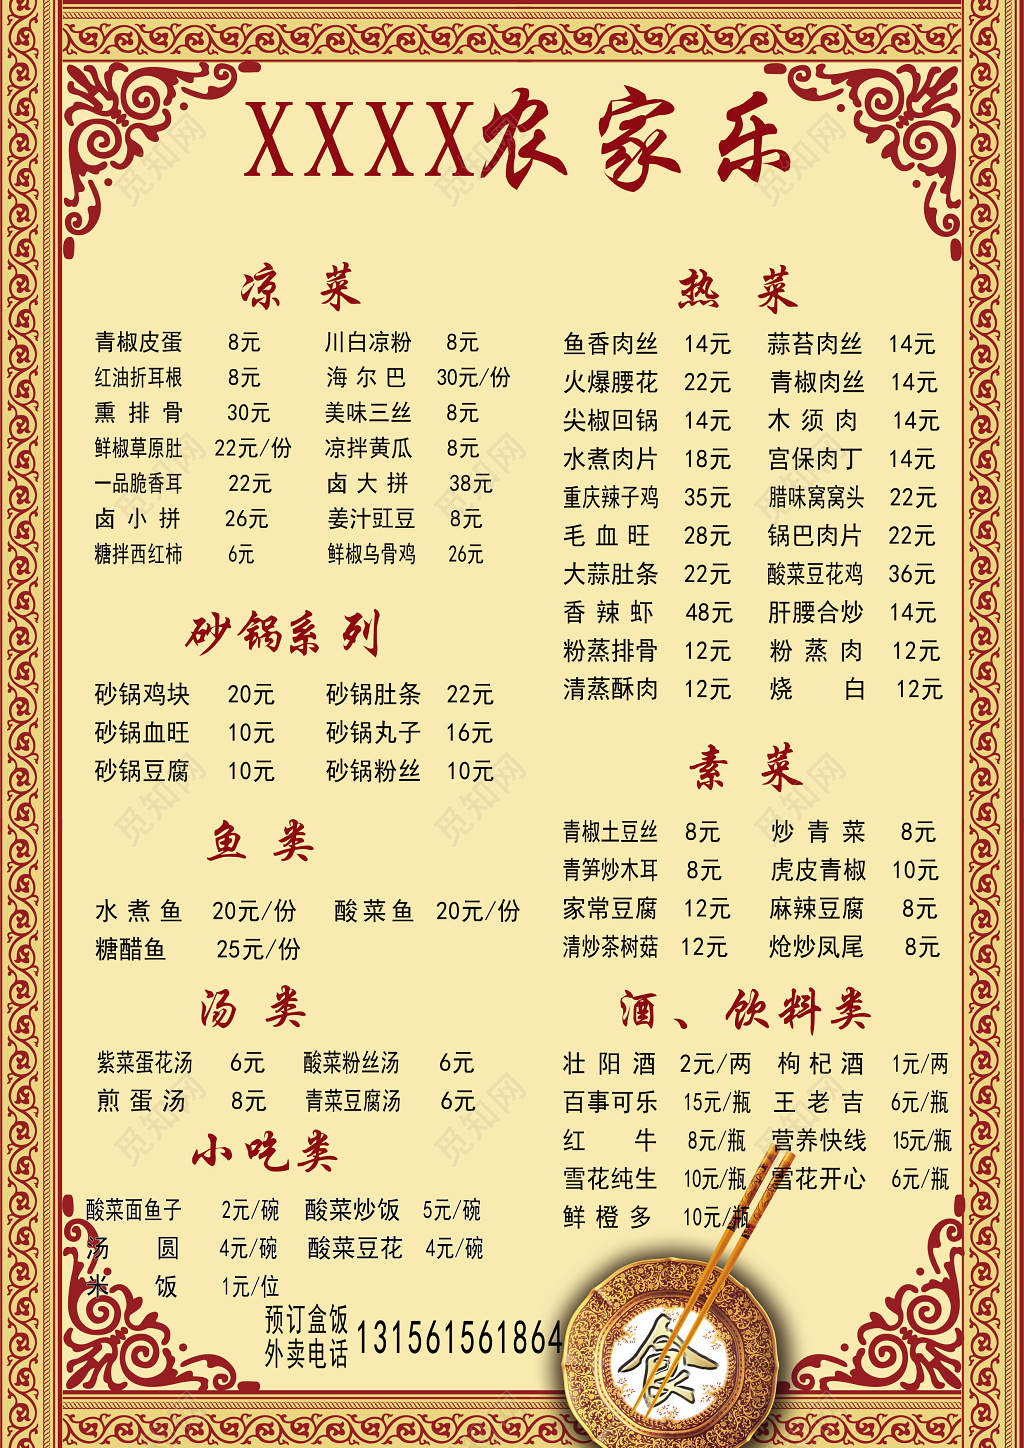 XXXX农家乐
凉 菜
青椒皮蛋 8元 川白凉粉 8元
红油折耳根 8元 海尔巴 30元/份
熏排骨 30元 美味三丝 8元
鲜椒草原肚 22元/份 凉拌黄瓜 8元
一品脆香耳 22元 卤大拼 38元
卤小拼 26元 姜汁豇豆 8元
糖拌西红柿 6元 鲜椒乌骨鸡 26元
砂锅系列
砂锅鸡块 20元 砂锅肚条 22元
砂锅血旺 10元 砂锅丸子 16元
砂锅豆腐 10元 砂锅粉丝 10元
鱼 类
水煮鱼 20元/份 酸菜鱼 20元/份
糖醋鱼 25元/份
汤 类
紫菜蛋花汤 6元 酸菜粉丝汤 6元
煎蛋汤 8元 青菜豆腐汤 6元
小吃类
酸菜面鱼子 2元/碗 酸菜炒饭 5元/碗
汤圆 4元/碗 酸菜豆花 4元/碗
米饭 1元/位
热 菜
鱼香肉丝 14元 蒜苔肉丝 14元
火爆腰花 22元 青椒肉丝 14元
尖椒回锅 14元 木须肉 14元
水煮肉片 18元 宫保肉丁 14元
重庆辣子鸡 35元 腊味窝窝头 22元
毛血旺 28元 锅巴肉片 22元
大蒜肚条 22元 酸菜豆花鸡 36元
香辣虾 48元 肝腰合炒 14元
粉蒸排骨 12元 粉蒸肉 12元
清蒸酥肉 12元 烧白 12元
素 菜
青椒土豆丝 8元 炒青菜 8元
青笋炒木耳 8元 虎皮青椒 10元
家常豆腐 12元 麻辣豆腐 8元
清炒茶树菇 12元 炝炒凤尾 8元
酒、饮料类
壮阳酒 2元/两 枸杞酒 1元/两
百事可乐 15元/瓶 王老吉 6元/瓶
红牛 8元/瓶 营养快线 15元/瓶
雪花纯生 10元/瓶 雪花开心 6元/瓶
鲜橙多 10元/瓶
预订盒饭
外卖电话 131561561864
食
觅知网